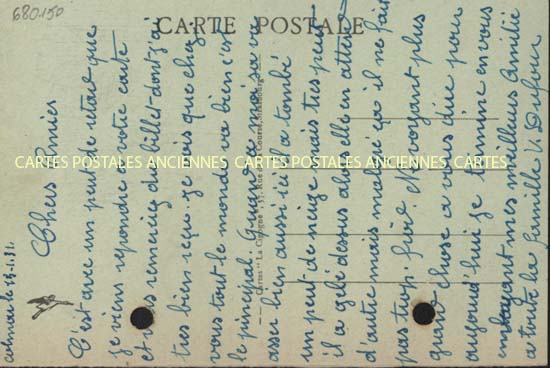 680150
CARTE POSTALE
Colmar le 18.1.31.
Chers Amies
C'est avec un peut de retard que
je viens repondre a votre carte
et vous remercie du billet dont j'ai
tres bien reçu. Je vois que chez
vous tout le monde va bien c'est
le principal. Quand a moi sa va
assez bien aussi ici il a tombé
un peut de neige mais tres peut
il a gelé dessus alors elle en attend
d'autre mais malgré ça il ne fait
pas trop froid. Ne voyant plus
grand chose a vous dire pour
aujourd'hui je termine en vous
envoyant mes meilleurs Amitié
a toute la famille
Dufour
CARTES POSTALES ANCIENNES CARTES POSTALES ANCIENNES CARTES POSTALES ANCIENNES
Cartes "La Cigogne", 37, Rue de la Course, Strasbourg